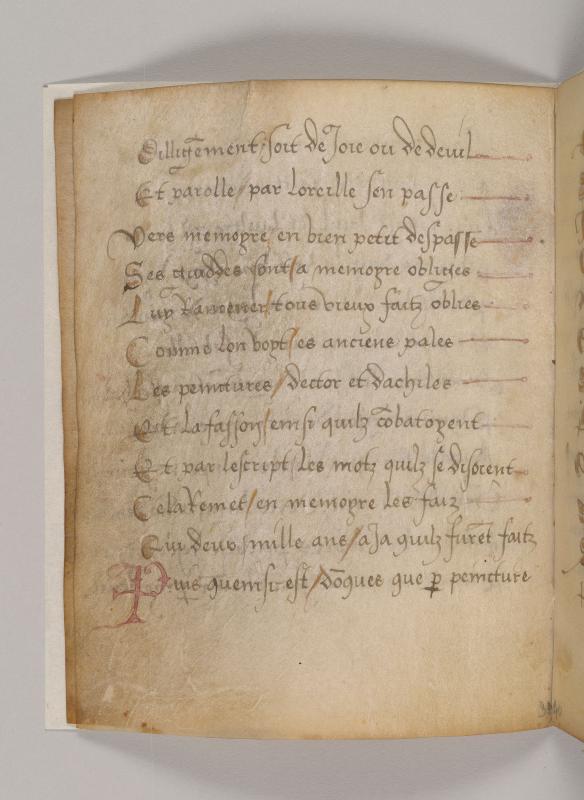 Dilligēment / soit de Joie ou de deuil
Et parolle / par loreille sen passe
Vers memoyre / en bien petit despasse
Ses guiddes sont / a memoyre obliges
Luy Ramener / tous vieux faitz oblies
Comme lon voyt / es anciens pales
Les peinctures / dector et dachiles
Et la fasson / ensi quilz cōbatoyent
Et par lescript / les motz quilz se disoient
Cela Remet / en memoyre les faiz
Qui deux mille ans / a Ja quilz furēt faitz
Puis quensi est / dōques que ꝑ peincture